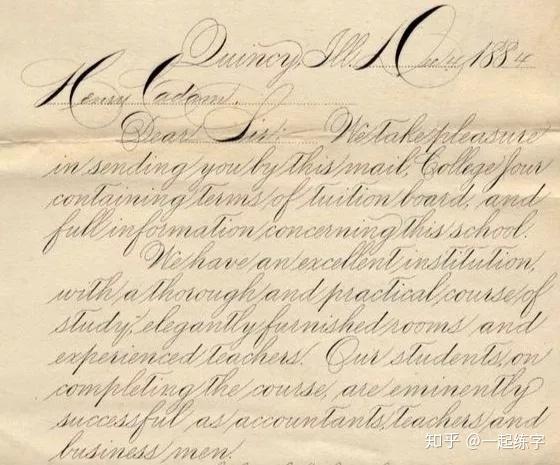 Quincy, Ill. 1884
Henry Cadam.
Dear Sir: We take pleasure
in sending you by this mail, College Jour
containing terms of tuition board, and
full information concerning this school.
We have an excellent institution,
with a thorough and practical course of
study, elegantly furnished rooms and
experienced teachers. Our students, on
completing the course, are eminently
successful as accountants, teachers and
business men.
知乎 @一起练字